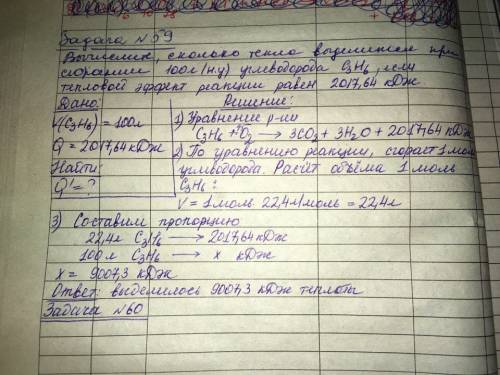 Задача №59
Вычислить, сколько тепла выделится при
сгорании 100л (н.у) углеводорода C3H6, если
тепловой эффект реакции равен 2017,64 кДж.
Дано:
V(C3H6) = 100л
Q = 2017,64 кДж
Найти:
Q' = ?
Решение:
1) Уравнение р-ии
C3H6 + O2 → 3CO2 + 3H2O + 2017,64 кДж
2) По уравнению реакции, сгорает 1 моль
углеводорода. Расчёт объёма 1 моль
C3H6:
V = 1моль. 22,4л/моль = 22,4л
3) Составим пропорцию
22,4л C3H6 → 2017,64 кДж
100л C3H6 → x кДж
x = 9007,3 кДж
Ответ: выделилось 9007,3 кДж теплоты
Задача №60